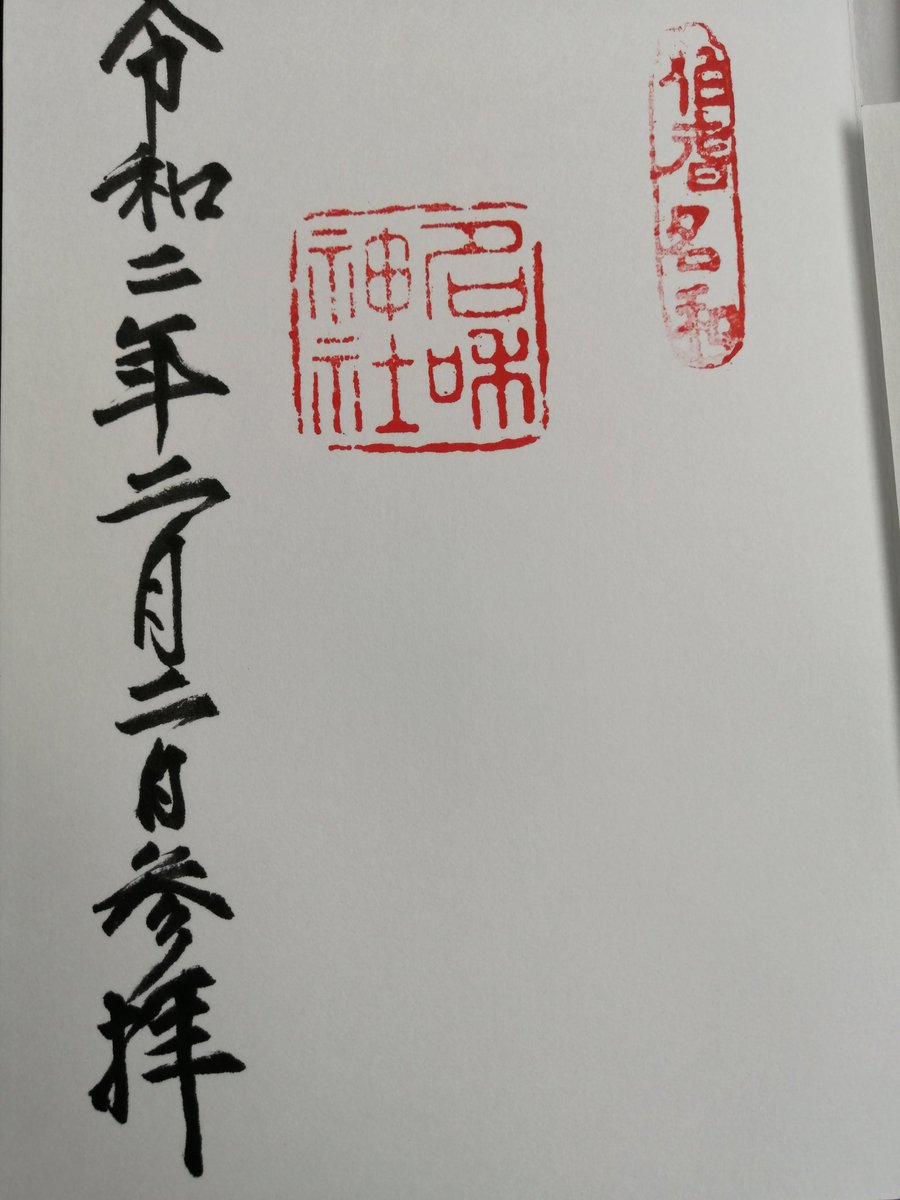 伯耆名和
名和
神社
令和二年二月二日参拝